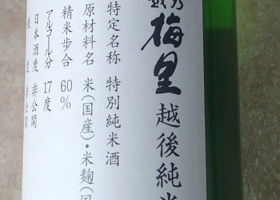 越乃梅里 越後純米
特定名称 特別純米酒
原材料名 米(国産)・米麹(国
精米歩合 60%
アルコール分 17度
日本酒度 非公開